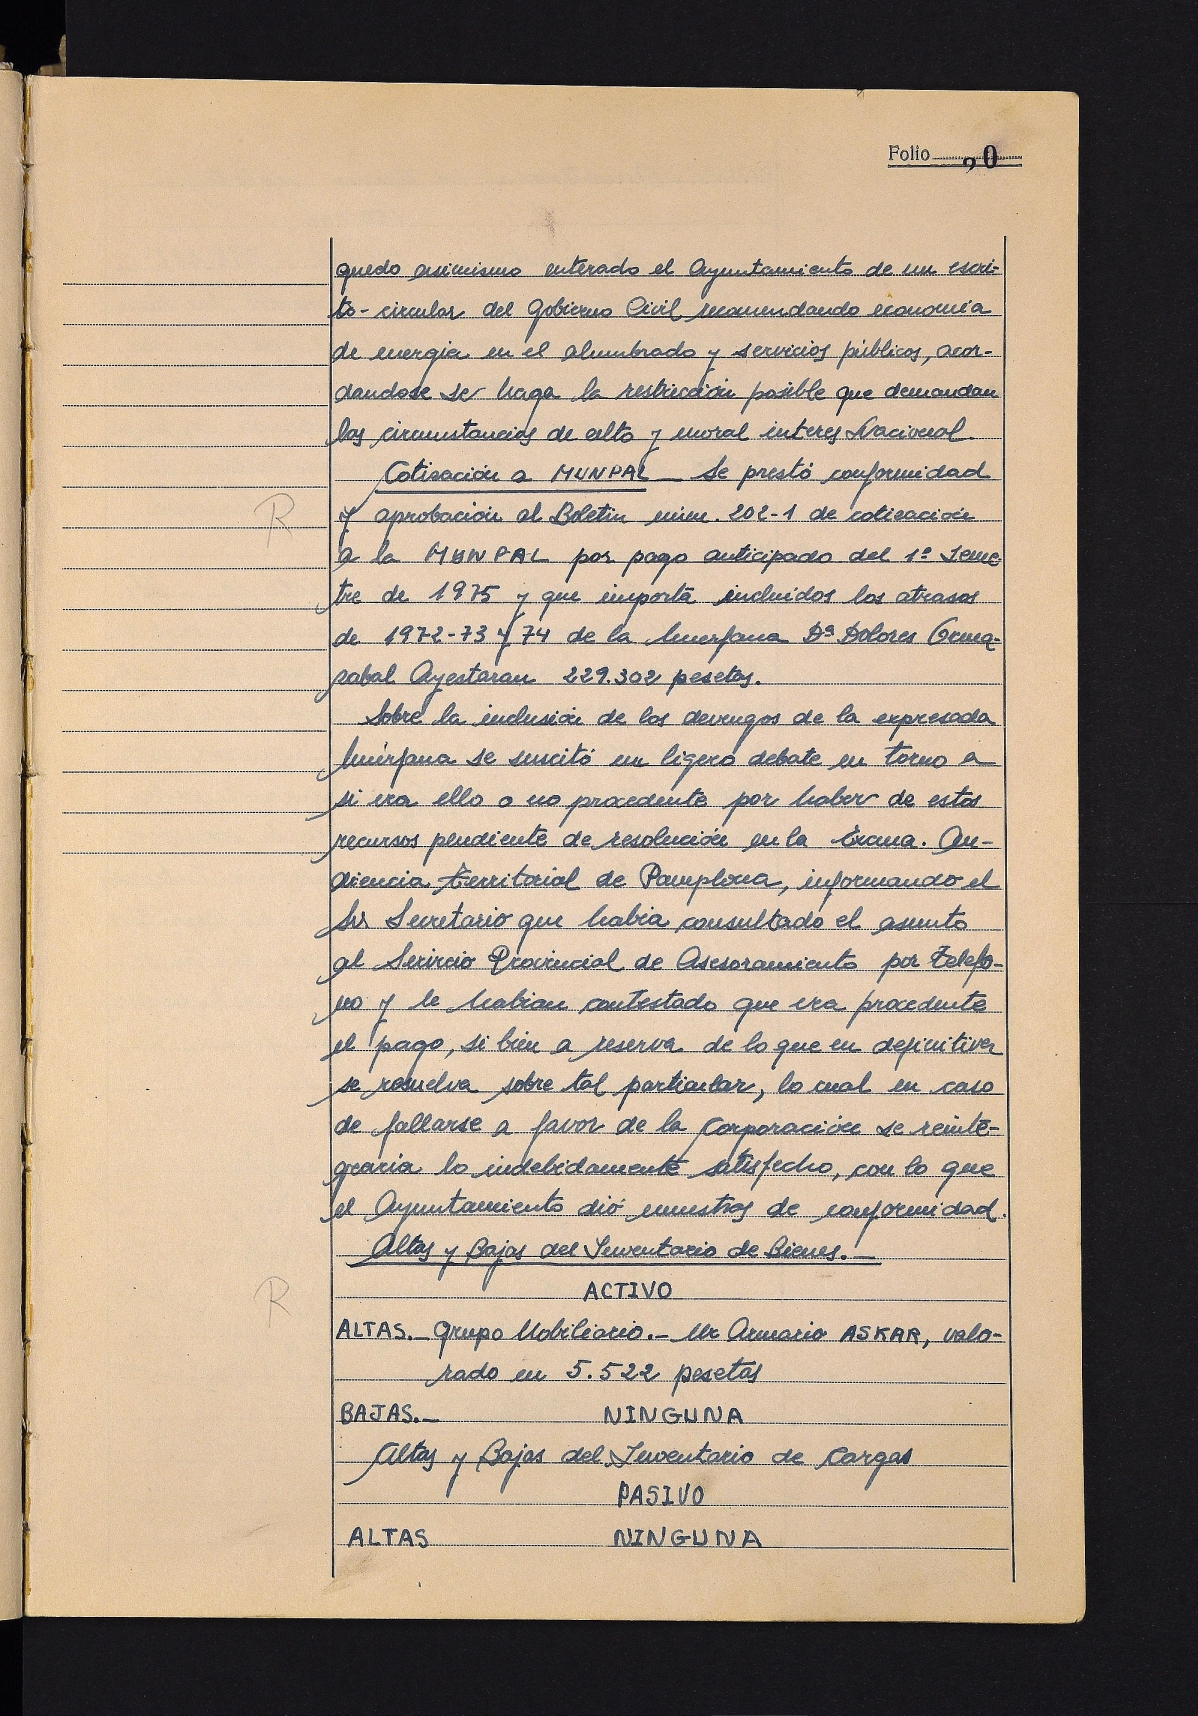 Folio 20
quedo asimismo enterado el Ayuntamiento de un escri-
to-circular del Gobierno Civil recomendando economia
de energia en el alumbrado y servicios públicos, acor-
dandose se haga la restricción posible que demandan
las circunstancias de alto y moral interes Nacional.
Cotización a MUNPAL — Se prestó conformidad
R
y aprobación al Boletin núm. 202-1 de cotización
a la MUNPAL por pago anticipado del 1º Semes
tre de 1975 y que importa incluidos los atrasos
de 1972-73 y 74 de la huerfana Dª Dolores Ormaʐ-
zabal Ayestaran 229.302 pesetas.
Sobre la inclusión de los devengos de la expresada
huérfana se suscitó un ligero debate en torno a
si era ello o no procedente por haber de estos
recursos pendiente de resolución en la Excma. Au-
diencia Territorial de Pamplona, informando el
Sr Secretario que habia consultado el asunto
al Servicio Provincial de Asesoramiento por Telefo-
no y le habian contestado que era procedente
el pago, si bien a reserva de lo que en definitiva
se resuelva sobre tal particular, lo cual en caso
de fallarse a favor de la Corporación se reinte-
graria lo indebidamente satisfecho, con lo que
el Ayuntamiento dió muestras de conformidad.
Altas y Bajas del Inventario de Bienes.—
R
ACTIVO
ALTAS.— Grupo Mobiliario.— Un Armario ASKAR, valo-
rado en 5.522 pesetas
BAJAS.— NINGUNA
Altas y Bajas del Inventario de Cargas
PASIVO
ALTAS NINGUNA